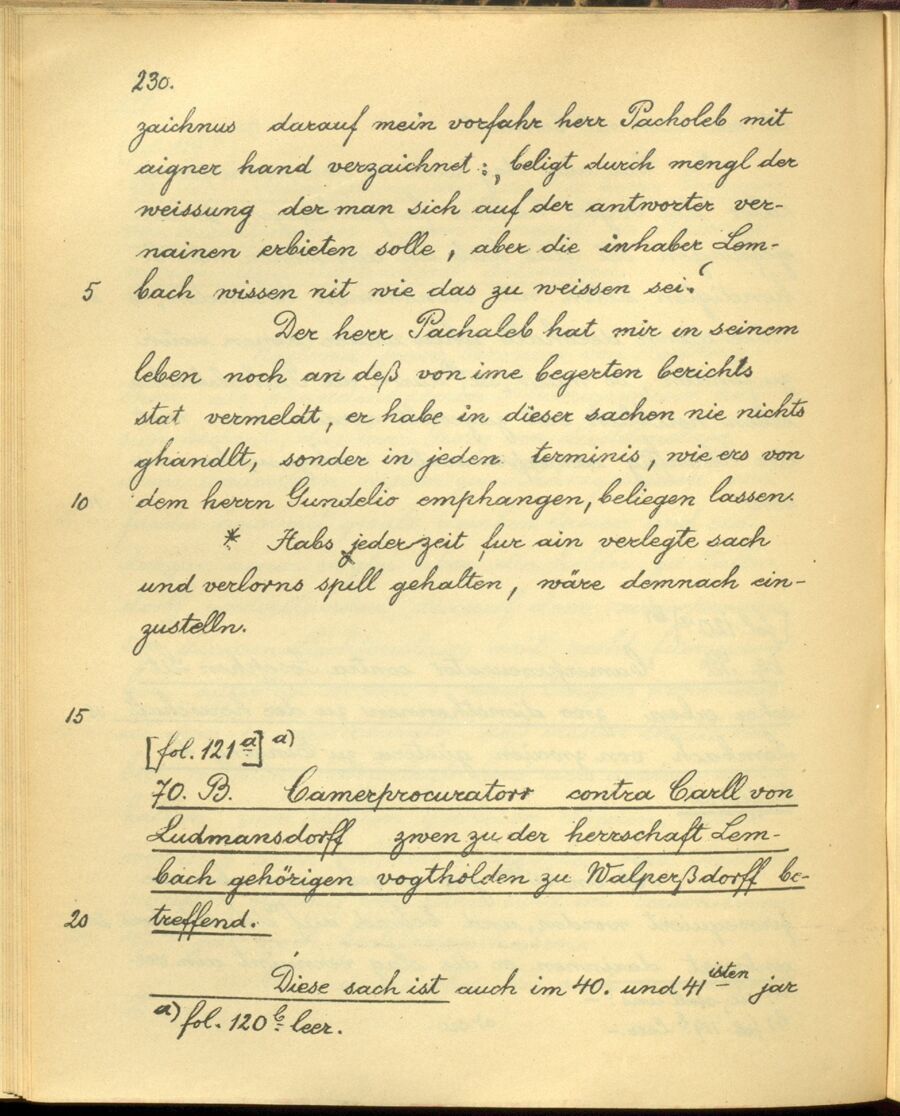 230.
zaichnus darauf mein vorfahr herr Pacholeb mit
aigner hand verzaichnet:, beligt durch mengl der
weissung der man sich auf der antworter ver-
nainen erbieten solle, aber die inhaber Lem-
5 bach wissen nit wie das zu weissen sei.‘
Der herr Pachaleb hat mir in seinem
leben noch an deß von ime begerten berichts
stat vermeldt, er habe in dieser sachen nie nichts
ghandlt, sonder in jeden terminis, wie ers von
10 dem herrn Gundelio emphangen, beliegen lassen.
* Habs jederzeit fur ain verlegte sach
und verlorns spill gehalten, wäre demnach ein-
zustelln.
15
[fol. 121a] a)
70. B. Camerprocurators contra Carll von
Ludmansdorff zwen zu der herrschaft Lem-
bach gehörigen vogtholden zu Walperßdorff be-
20 treffend.
Diese sach ist auch im 40. und 41isten jar
a) fol. 120b leer.